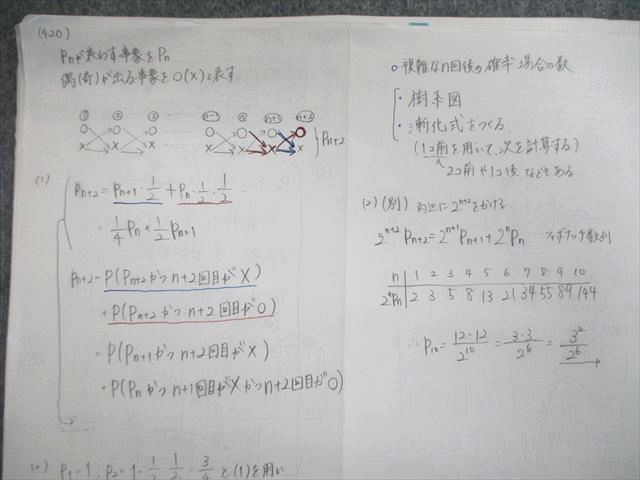 (420)
Pnが表わす事象をPn
偶(奇)が出る事象を○(×)と表す
① ② ③ n-1 n n+1 n+2
○ ○ ○ ○ ○ ○ ○
× × × × × × ×
Pn+2
(1)
Pn+2 = Pn+1・1/2 + Pn・1/2・1/2
= 1/4 Pn + 1/2 Pn+1
Pn+2 = P(Pn+2かつn+2回目が×)
+ P(Pn+2かつn+2回目が○)
= P(Pn+1かつn+2回目が×)
+ P(Pnかつn+1回目が×かつn+2回目が○)
(2) P1=1, P2=1-1/2・1/2=3/4 と(1)を用い
○ 複雑なn回後の確率・場合の数
・樹系図
・漸化式をつくる
(1コ前を用いて、次を計算する)
2コ前や1コ後などもある
(2)(別) 両辺に2^n+2をかける
2^n+2 Pn+2 = 2^n+1 Pn+1 + 2^n Pn フィボナッチ数列
n 1 2 3 4 5 6 7 8 9 10
2^n Pn 2 3 5 8 13 21 34 55 89 144
∴ P10 = 12・12/2^10 = 3・3/2^6 = 3^2/2^6